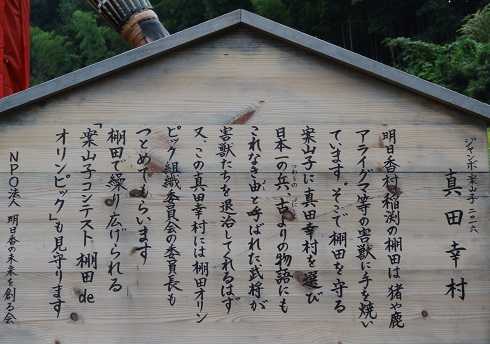 ジャンボ案山子二〇一六
真田幸村
明日香村稲渕の棚田は猪や鹿
アライグマ等の害獣に手を焼い
ています。そこで棚田を守る
案山子に真田幸村を選び
日本一の兵、古よりの物語にも
つわもの
これなき由と呼ばれた武将が
害獣たちを退治してくれるはず
又、この真田幸村には棚田オリン
ピック組織委員会の委員長も
つとめてもらいます
棚田で繰り広げられる
「案山子コンテスト 棚田de
オリンピック」も見守ります
NPO法人 明日香の未来を創る会